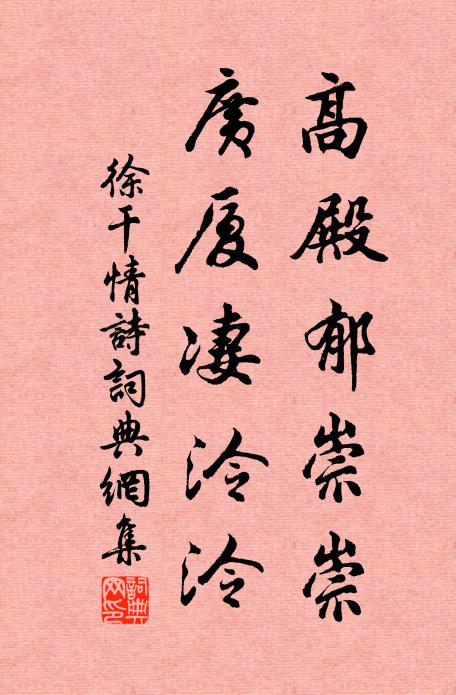 高殿郁崇崇
廣厦凄泠泠
徐干情詩詞典網集
詞典网印